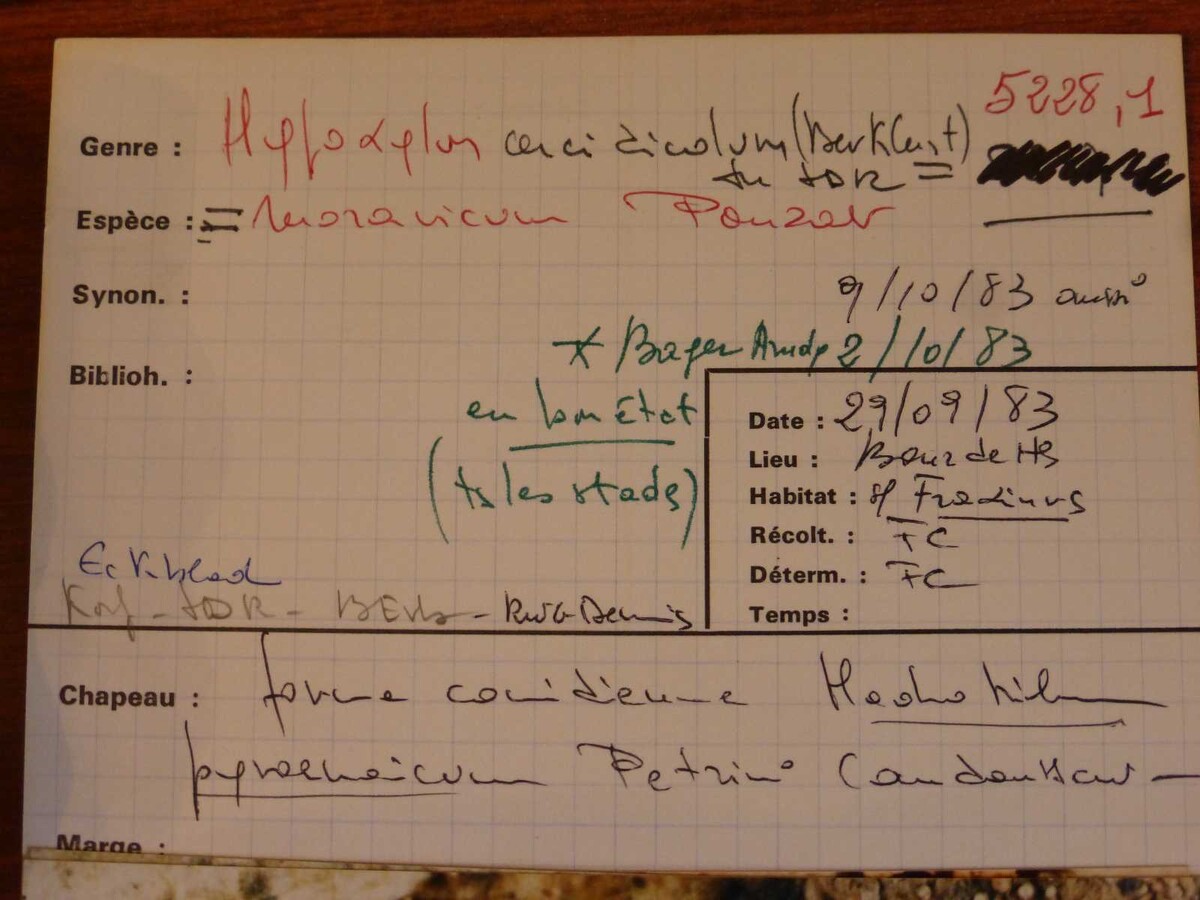 5228,1
Genre : Hypoxylon cercidicolum (Berk & Curt)
JDR =
Espèce : = moravicum Pouzar
Synon. : 9/10/83 aussi
Biblioh. : * 2/10/83
en bon état
(ts les stads)
Date : 29/09/83
Lieu :
Habitat : s/ Fraxinus
Récolt. : FC
Déterm. : FC
Temps :
Eckblad
Korf - JDR - - RWG Dennis
Chapeau : forme conidienne
pyrenaicum Petrini Candoussau
Marge :